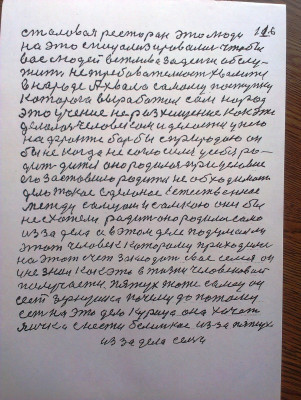 столовая ресторан это люди 116
на это специализировались чтобы
вас людей вежливо за деньги обслу-
жить. не требовательность хвалить
в народе а хвала самому поступку
которого выработал сам народ
это учение не размещение как это
делалось человеком и делается у него
на фронте борьбы с природою он
бы не когда не согласился у себя ро-
дить дитя она родилася прицеплине
его заставило родить не обходимость
дело такое сделано естественное
между самцом и самкою они бы
не схотели родит она родила само
из за дела а в этом деле подумали
этот человек которому приходилось
на этот счет заводит свое семя он
и не знал как это в жизни человеком
получается. петух тоже самое он
сест зернушка почему до потому
сет на это дело курица она хочет
яичка снести белинкое из за петуха
из за дела семи